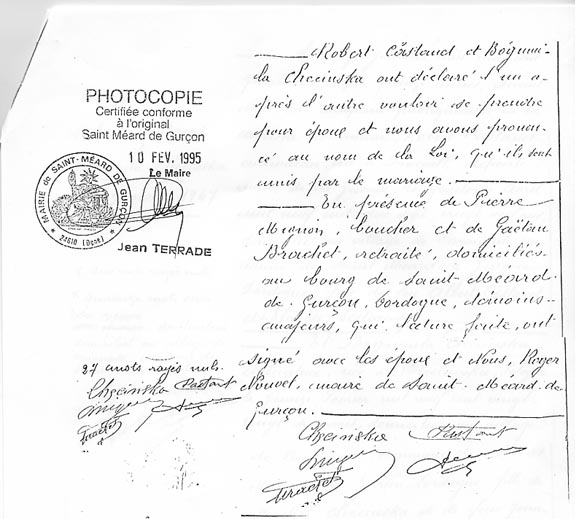 PHOTOCOPIE
Certifiée conforme
à l'original
Saint Méard de Gurçon
10 FEV. 1995
Le Maire
MAIRIE de SAINT-MÉARD DE GURÇON
* 24610 (Dgne) *
Jean TERRADE
Robert et Bogumi-
la Checinska ont déclaré l'un a-
près l'autre vouloir se prendre
pour époux et nous avons pronon-
cé au nom de la Loi, qu'ils sont
unis par le mariage.
En présence de Pierre
Mignon, boucher et de Gaëtan
Brachet, retraité, domiciliés
au bourg de Saint Méard-
de-Gurçon, Dordogne, témoins
majeurs, qui, lecture faite, ont
signé avec les époux et Nous, Roger
Nouvel, maire de Saint-Méard-de-
Gurçon.
27 mots rayés nuls.
Checinska
Checinska